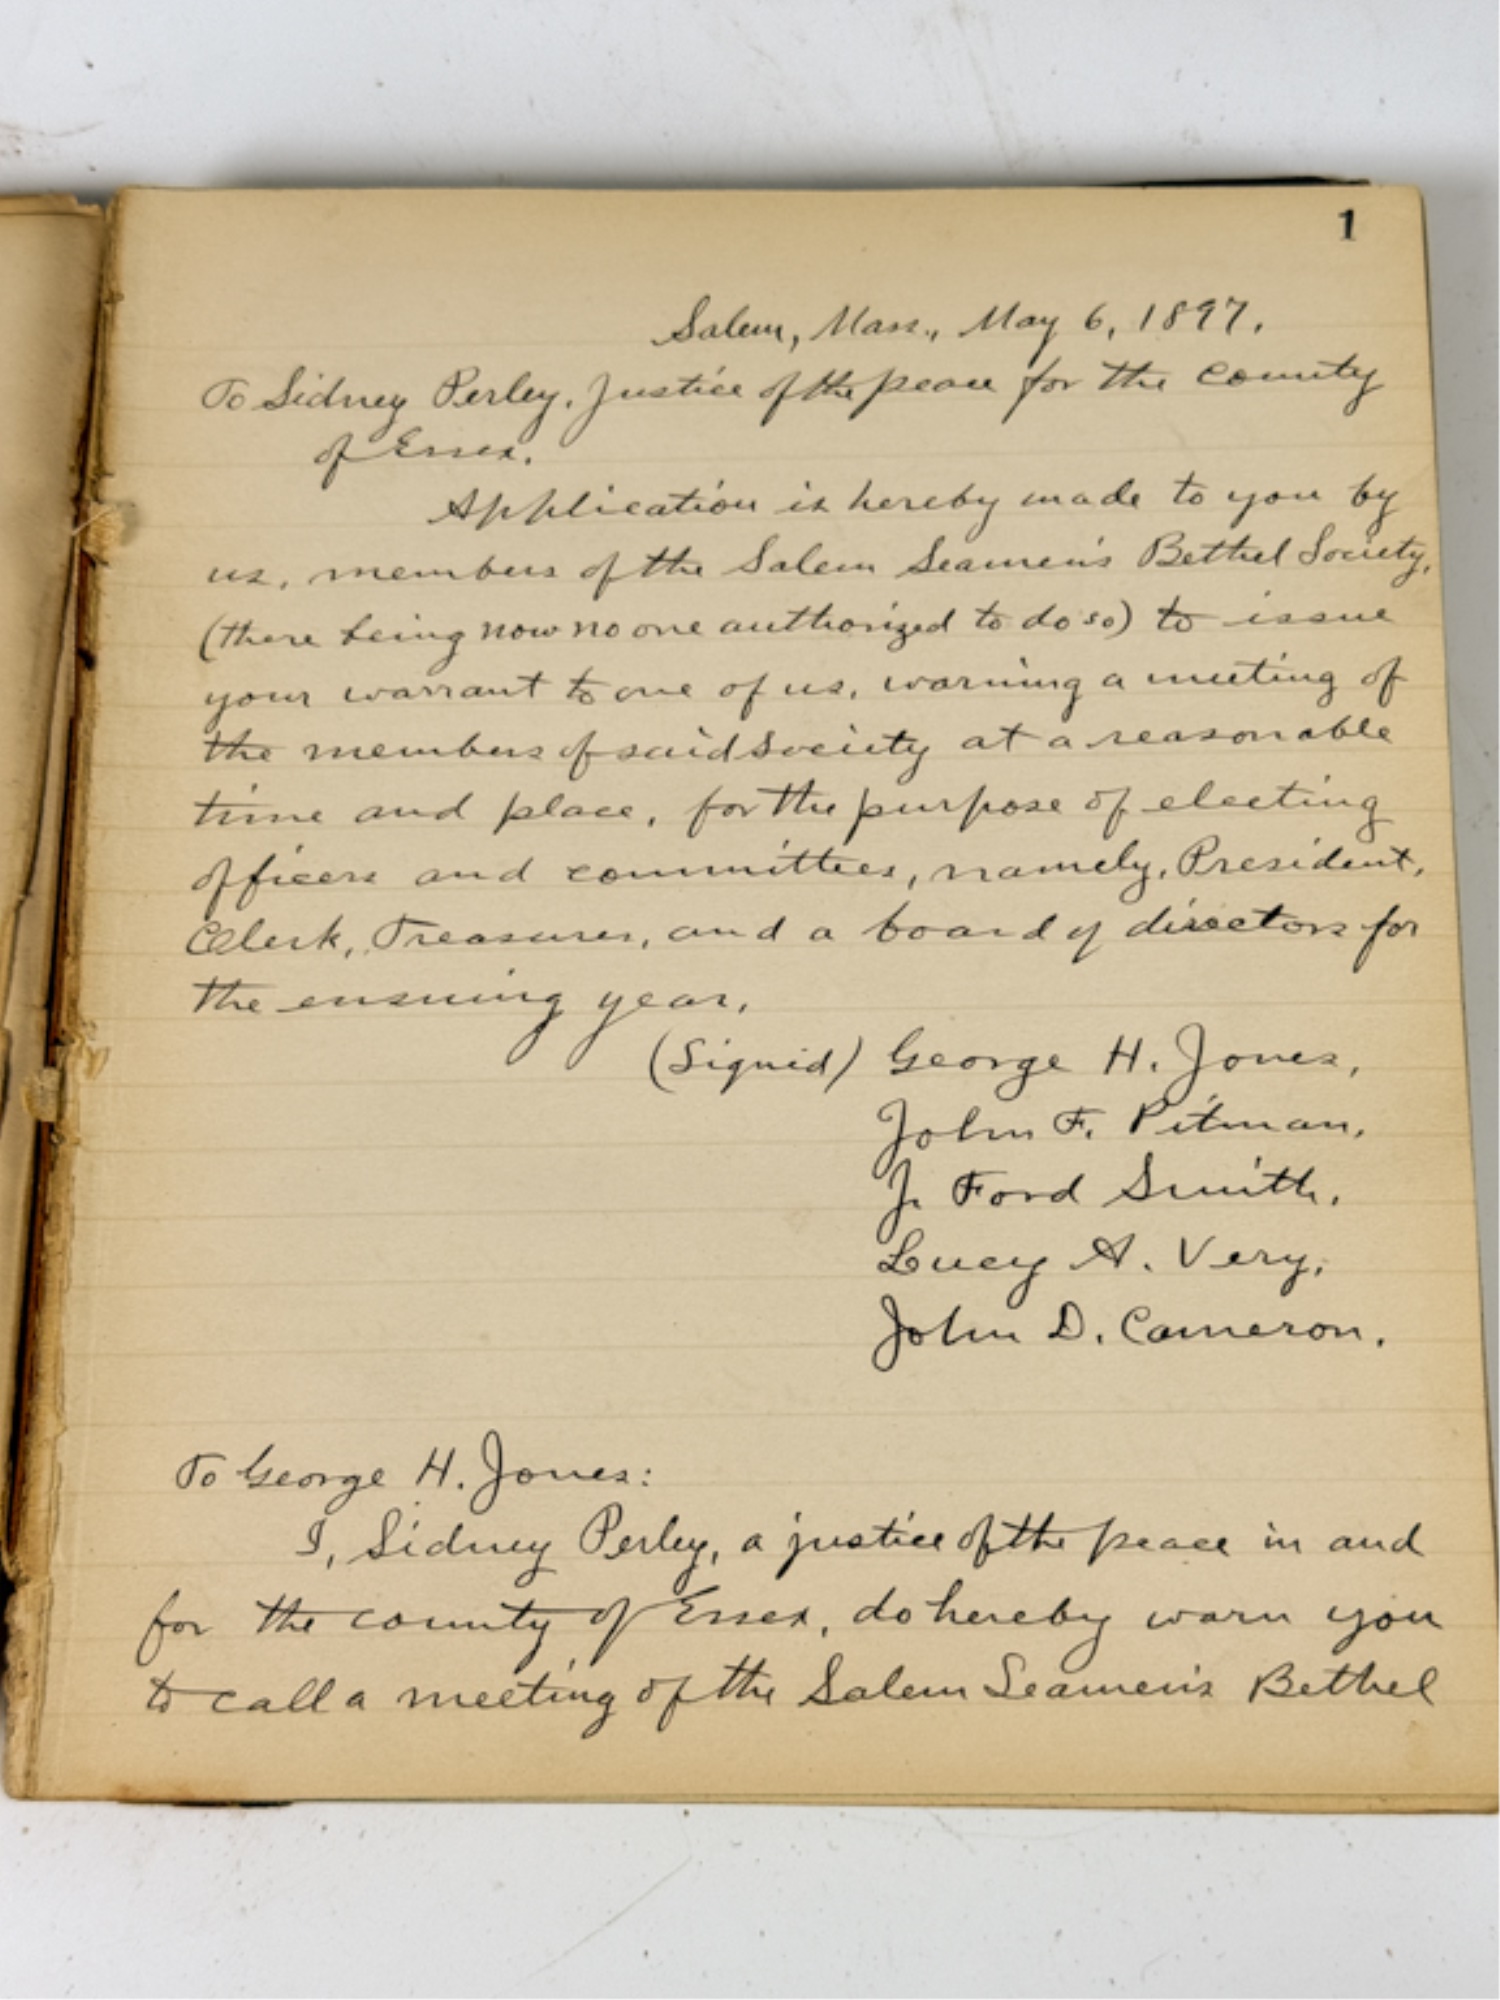 1
Salem, Mass., May 6, 1897.
To Sidney Perley, Justice of the peace for the county
of Essex.
Application is hereby made to you by
us, members of the Salem Seamen's Bethel Society,
(there being now no one authorized to do so) to issue
your warrant to one of us, warning a meeting of
the members of said Society at a reasonable
time and place, for the purpose of electing
officers and committees, namely, President,
Clerk, Treasurer, and a board of directors for
the ensuing year.
(Signed) George H. Jones,
John F. Pitman,
J. Ford Smith,
Lucy A. Very,
John D. Cameron.
To George H. Jones:
I, Sidney Perley, a justice of the peace in and
for the county of Essex, do hereby warn you
to call a meeting of the Salem Seamen's Bethel